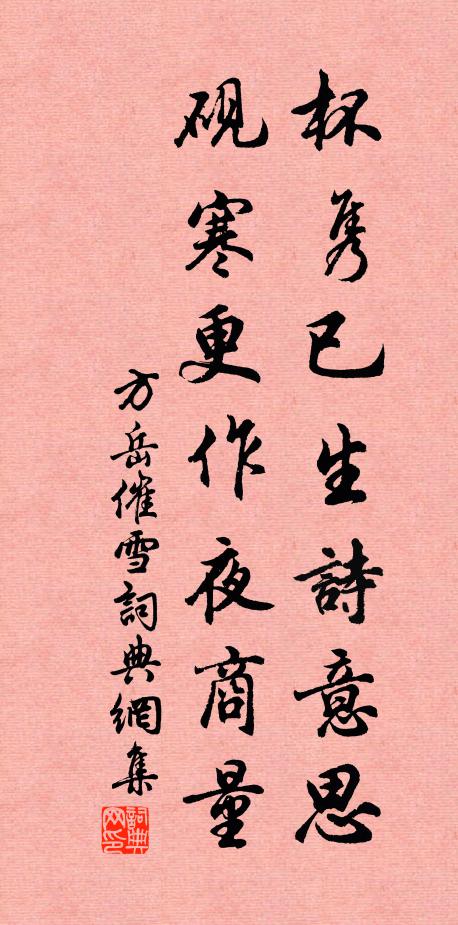 杯隽已生詩意思
硯寒更作夜商量
方岳催雪詞典網集
詞典网印